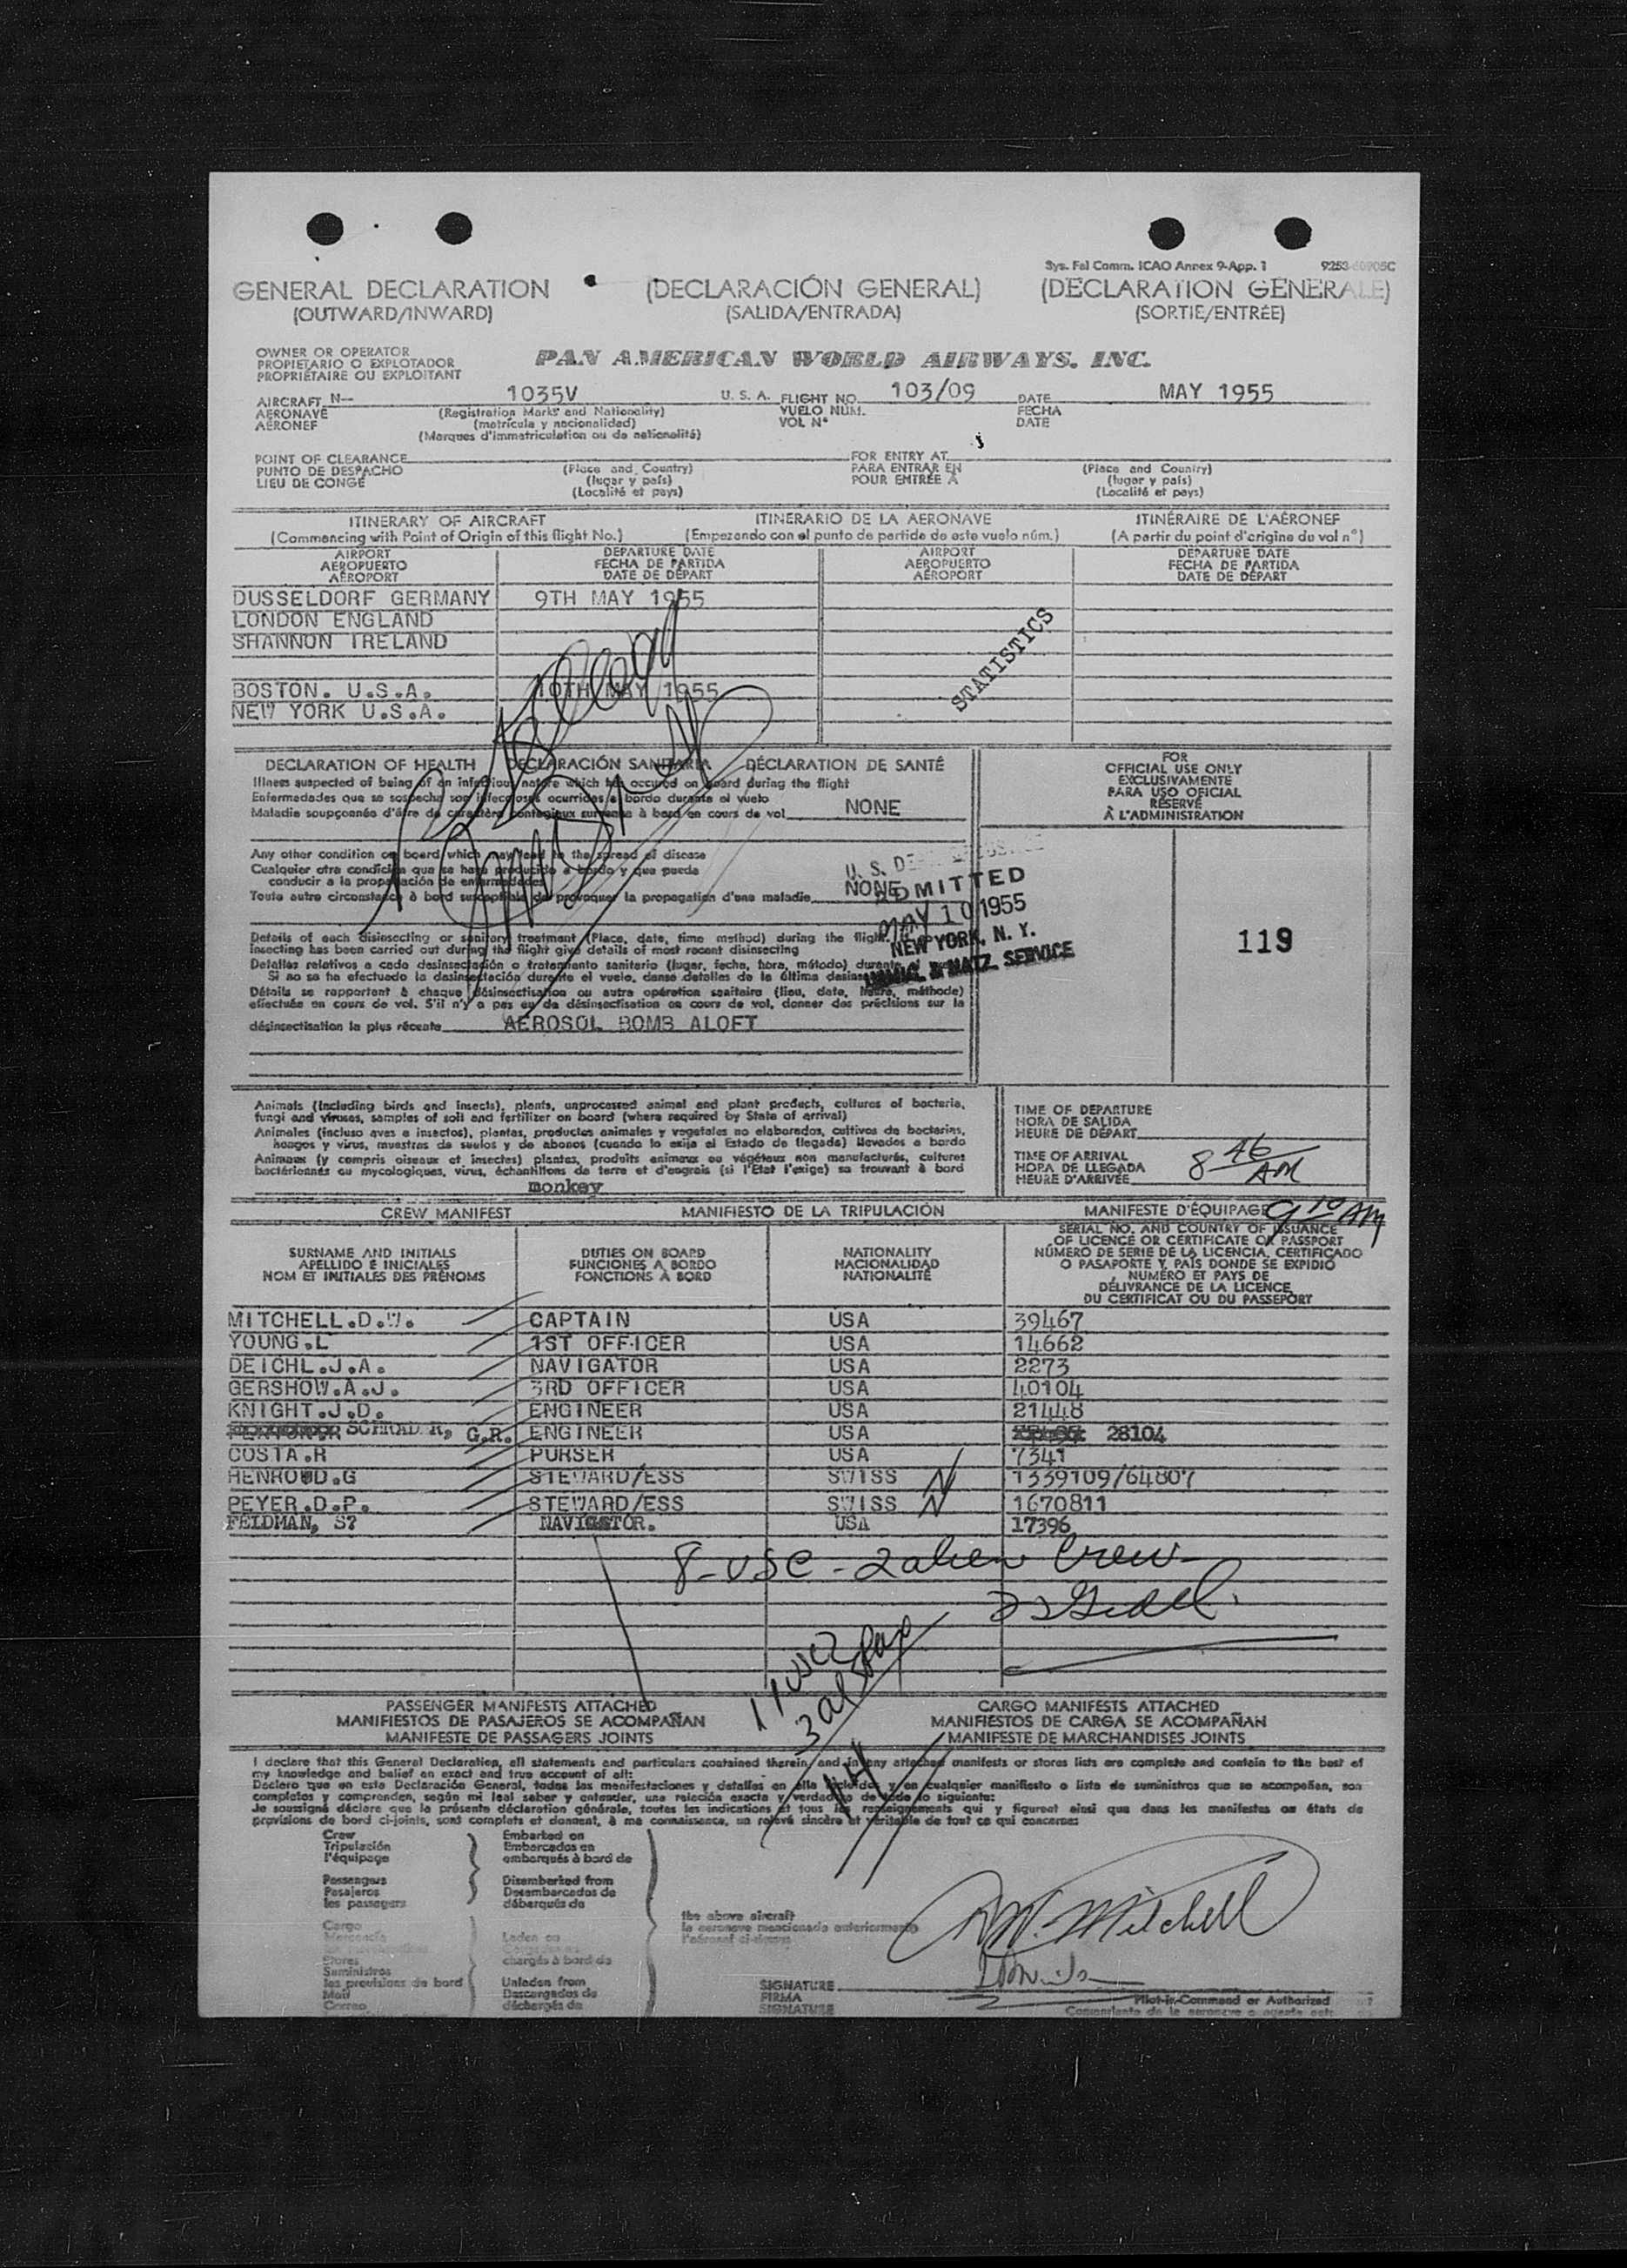 Sys. Fal Comm. ICAO Annex 9-App. 1
GENERAL DECLARATION (DECLARACIÓN GENERAL) (DECLARATION GENERALE)
(OUTWARD/INWARD) (SALIDA/ENTRADA) (SORTIE/ENTRÉE)
OWNER OR OPERATOR
PROPIETARIO O EXPLOTADOR PAN AMERICAN WORLD AIRWAYS, INC.
PROPRIÉTAIRE OU EXPLOITANT
AIRCRAFT N- 1035V U. S. A. FLIGHT NO. 103/09 DATE MAY 1955
AERONAVE (Registration Marks and Nationality) VUELO NÚM. FECHA
AÉRONEF (matrícula y nacionalidad) VOL Nº DATE
(Marques d'immatriculation ou de nationalité)
POINT OF CLEARANCE FOR ENTRY AT
PUNTO DE DESPACHO (Place and Country) PARA ENTRAR EN (Place and Country)
LIEU DE CONGÉ (lugar y país) POUR ENTRÉE À (lugar y país)
(Localité et pays) (Localité et pays)
ITINERARY OF AIRCRAFT ITINERARIO DE LA AERONAVE ITINÉRAIRE DE L'AÉRONEF
(Commencing with Point of Origin of this flight No.) (Empezando con el punto de partida de este vuelo núm.) (A partir du point d'origine du vol nº)
AIRPORT DEPARTURE DATE AIRPORT DEPARTURE DATE
AEROPUERTO FECHA DE PARTIDA AEROPUERTO FECHA DE PARTIDA
AÉROPORT DATE DE DÉPART AÉROPORT DATE DE DÉPART
DUSSELDORF GERMANY 9TH MAY 1955
LONDON ENGLAND
SHANNON IRELAND
STATISTICS
BOSTON. U.S.A. 10TH MAY 1955
NEW YORK U.S.A.
DECLARATION OF HEALTH DECLARACIÓN SANITARIA DÉCLARATION DE SANTÉ
Illness suspected of being of an infectious nature which has occured on board during the flight
Enfermedades que se sospecha son infecciosas ocurridas a bordo durante el vuelo
Maladie soupçonnée d'être de caractère contagieux survenue à bord en cours de vol NONE
FOR
OFFICIAL USE ONLY
EXCLUSIVAMENTE
PARA USO OFICIAL
RÉSERVÉ
À L'ADMINISTRATION
Any other condition on board which may lead to the spread of disease
Cualquier otra condición que se haya producido a bordo y que pueda
conducir a la propagación de enfermedades
Toute autre circonstance à bord susceptible de provoquer la propagation d'une maladie NONE
ADMITTED
MAY 10 1955
NEW YORK, N. Y.
IMMIG. & NATZ. SERVICE
119
Details of each disinsecting or sanitary treatment (Place, date, time method) during the flight
insecting has been carried out during the flight give details of most recent disinsecting
Detalles relativos a cada desinsectación o tratamiento sanitario (lugar, fecha, hora, método) durante
Si no se ha efectuado la desinsectación durante el vuelo, danse detalles de la última
Détails se rapportant à chaque désinsectisation ou autre opération sanitaire (lieu, date, heure, méthode)
effectués en cours de vol. S'il n'y a pas eu de désinsectisation en cours de vol, donner des précisions sur la
désinsectisation la plus récente AEROSOL BOMB ALOFT
Animals (including birds and insects), plants, unprocessed animal and plant products, cultures of bacteria,
fungi and viruses, samples of soil and fertilizer on board (where required by State of arrival)
Animales (incluso aves e insectos), plantas, productos animales y vegetales no elaborados, cultivos de bacterias,
hongos y virus, muestras de suelos y de abonos (cuando lo exija el Estado de llegada) llevados a bordo
Animaux (y compris oiseaux et insectes) plantes, produits animaux ou végétaux non manufacturés, cultures
bactériennes ou mycologiques, virus, échantillons de terre et d'engrais (si l'Etat l'exige) se trouvant à bord
monkey
TIME OF DEPARTURE
HORA DE SALIDA
HEURE DE DÉPART
TIME OF ARRIVAL
HORA DE LLEGADA 8 46 AM
HEURE D'ARRIVÉE
CREW MANIFEST MANIFIESTO DE LA TRIPULACIÓN MANIFESTE D'ÉQUIPAGE 9 10 AM
SURNAME AND INITIALS DUTIES ON BOARD NATIONALITY SERIAL NO. AND COUNTRY OF ISSUANCE
APELLIDO E INICIALES FUNCIONES A BORDO NACIONALIDAD OF LICENCE OR CERTIFICATE OR PASSPORT
NOM ET INITIALES DES PRÉNOMS FONCTIONS À BORD NATIONALITÉ NÚMERO DE SERIE DE LA LICENCIA, CERTIFICADO
O PASAPORTE Y PAÍS DONDE SE EXPIDIÓ
NUMÉRO ET PAYS DE
DÉLIVRANCE DE LA LICENCE,
DU CERTIFICAT OU DU PASSEPORT
MITCHELL.D.W. CAPTAIN USA 39467
YOUNG.L 1ST OFFICER USA 14662
DEICHL.J.A. NAVIGATOR USA 2273
GERSHOW.A.J. 3RD OFFICER USA 40104
KNIGHT.J.D. ENGINEER USA 21448
SCHRADER, G.R. ENGINEER USA 28104
COSTA.R PURSER USA 7341
HENROUD.G STEWARD/ESS SWISS N 1339109/64807
PEYER.D.P. STEWARD/ESS SWISS N 1670811
FELDMAN, S? NAVIGATOR. USA 17396
8-USC-2 alien Crew
11 USC
3 al Pax
14
PASSENGER MANIFESTS ATTACHED CARGO MANIFESTS ATTACHED
MANIFIESTOS DE PASAJEROS SE ACOMPAÑAN MANIFIESTOS DE CARGA SE ACOMPAÑAN
MANIFESTE DE PASSAGERS JOINTS MANIFESTE DE MARCHANDISES JOINTS
I declare that this General Declaration, all statements and particulars contained therein, and in any attached manifests or stores lists are complete and contain to the best of
my knowledge and belief an exact and true account of all:
Declaro que en esta Declaración General, todas las manifestaciones y detalles en ella incluidos y en cualquier manifiesto o lista de suministros que se acompañan, son
completos y comprenden, según mi leal saber y entender, una relación exacta y verdadera de todo lo siguiente:
Je soussigné déclare que la présente déclaration générale, toutes les indications et tous les renseignements qui y figurent ainsi que dans les manifestes ou états de
provisions de bord ci-joints, sont complets et donnent, à ma connaissance, un relevé sincère et véritable de tout ce qui concerne:
Crew Embarked on
Tripulación Embarcados en
l'équipage embarqués à bord de
Passengers Disembarked from
Pasajeros Desembarcados de
les passagers débarqués de
the above aircraft
la aeronave mencionada anteriormente
l'aéronef ci-dessus
Cargo Laden on
Mercancía
chargés à bord de
Stores
Suministros
les provisions de bord Unladen from
Mail Descargados de
Correo déchargés de
D.W. Mitchell
SIGNATURE
FIRMA Pilot-in-Command or Authorized
SIGNATURE Comandante de la aeronave o agente